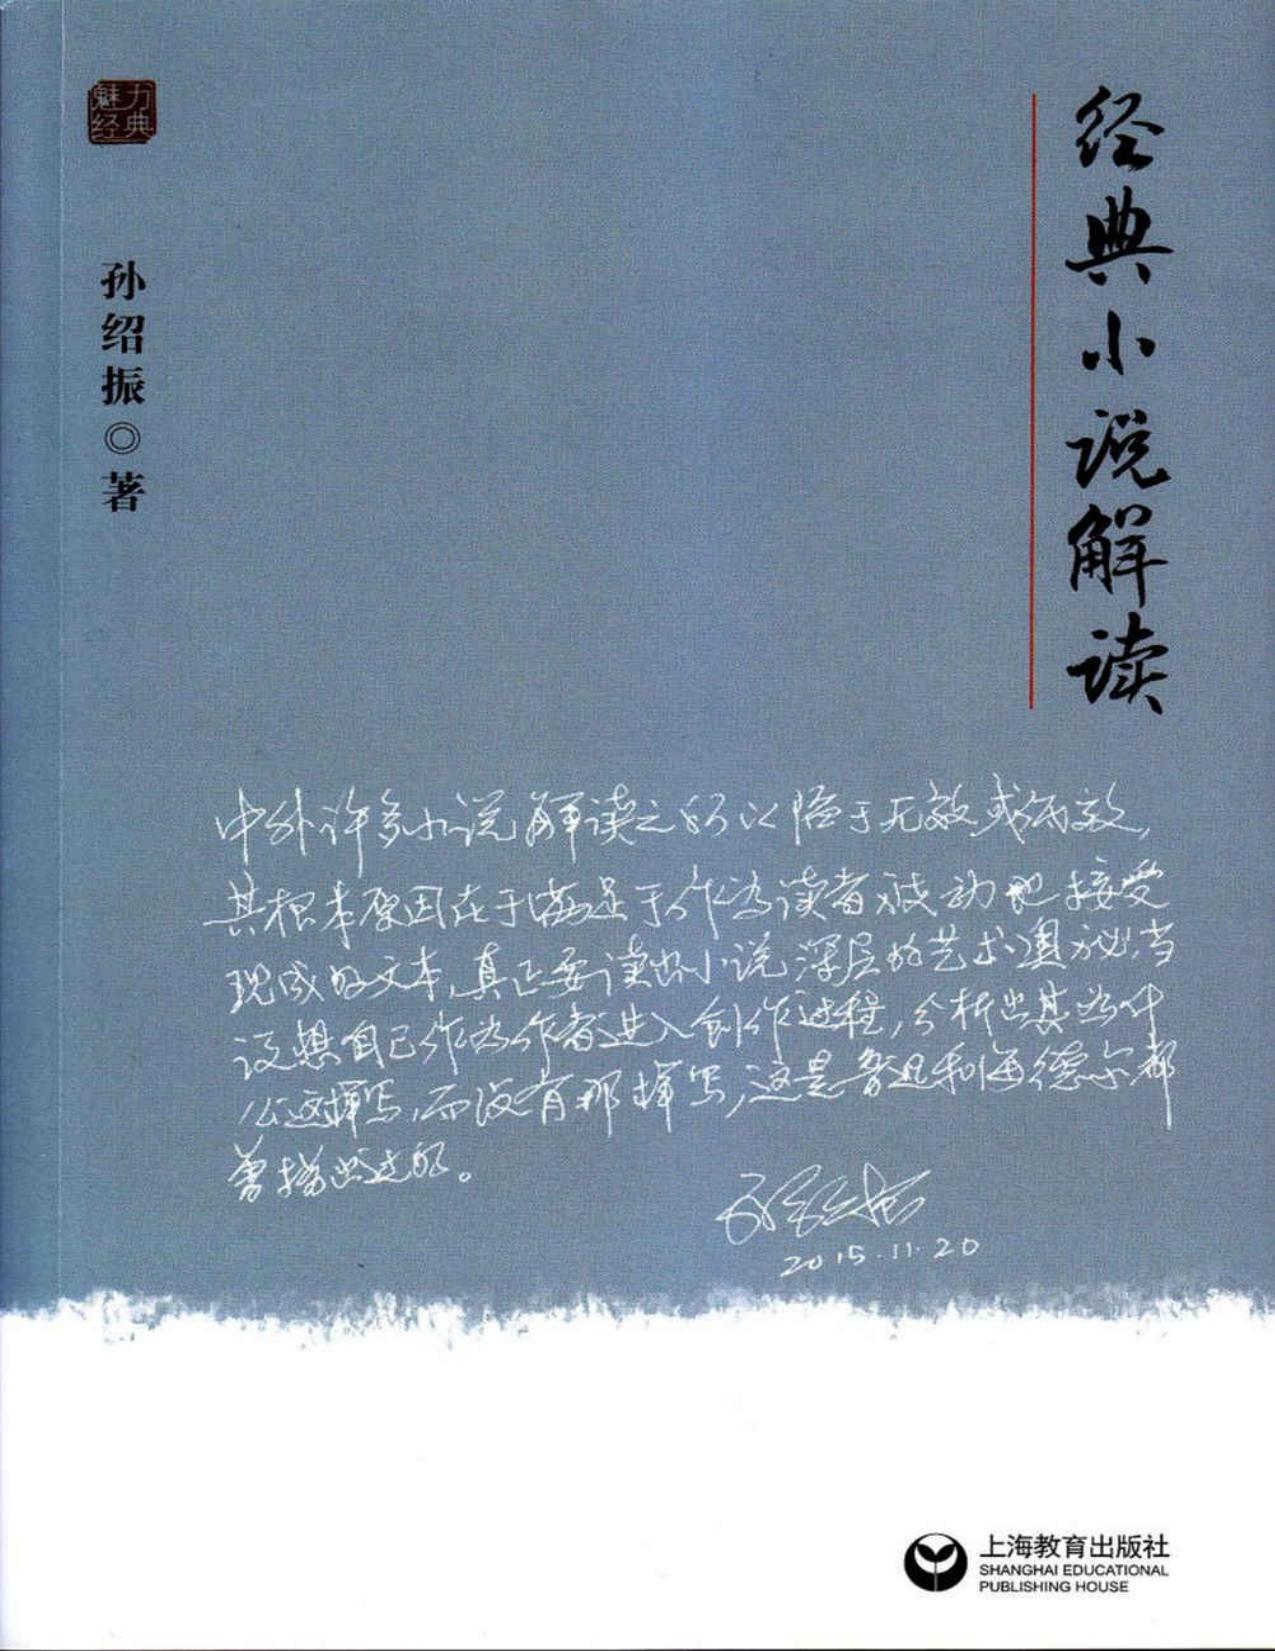 魅力
经典
经典小说解读
孙绍振◎著
中外许多小说解读之所以陷于无效或低效,
其根本原因在于满足于作为读者被动地接受
现成的文本,真正要读出小说深层的艺术奥秘,当
设想自己作为作者进入创作过程,分析出其为什
么这样写,而没有那样写,这是鲁迅和海德尔都
曾指出过的。
孙绍振
2015.11.20
上海教育出版社
SHANGHAI EDUCATIONAL
PUBLISHING HOUSE